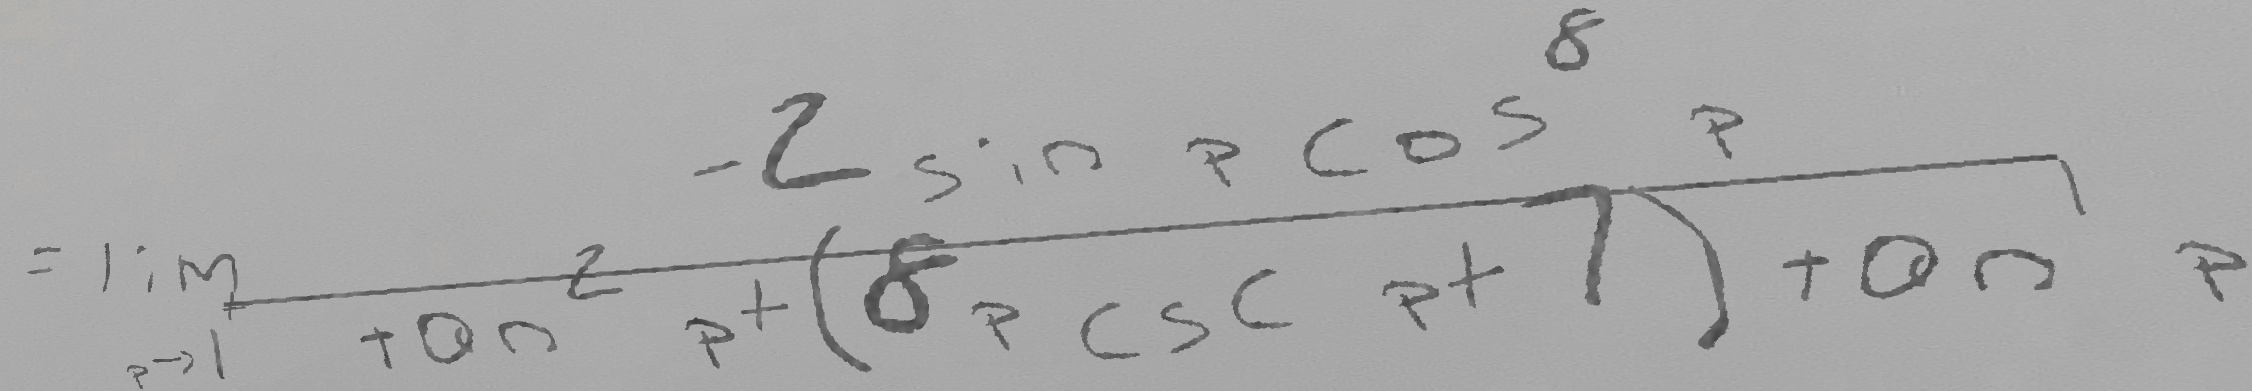 $= \lim_{p \to 1} \frac{-2 \sin p \cos^8 p}{\tan^2 p + (8p \csc p + 7) \tan p}$